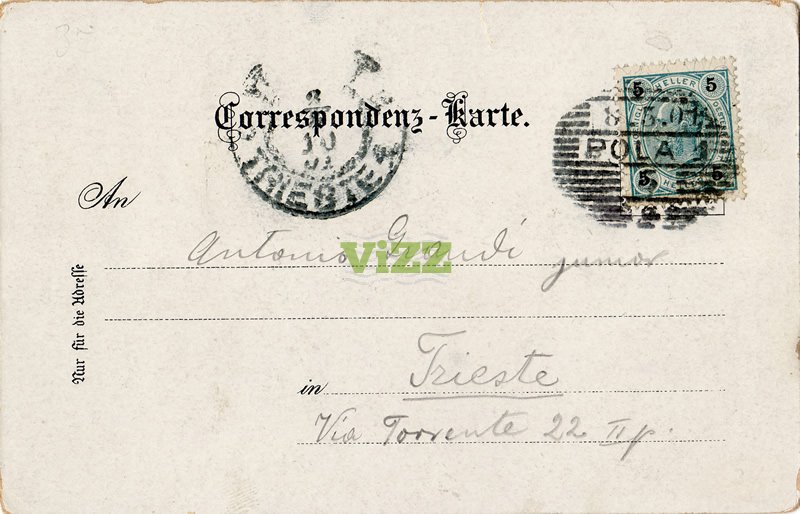 Correspondenz-Karte.
5 HELLER 5
5 5
POLA 1
TRIESTE
An
Antonio Grandi junior
ViZZ
Nur für die Adresse
in Trieste
Via Torrente 22 II p.